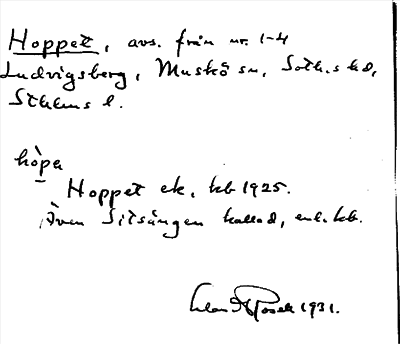 Hoppet, avs. från nr. 1-4
Ludvigsberg, Muskö sn, Soth.s hd,
Sthlms l.
hòpɐ
Hoppet ek. kb 1925.
Även Sitsången kallad, enl. kb.
1931.